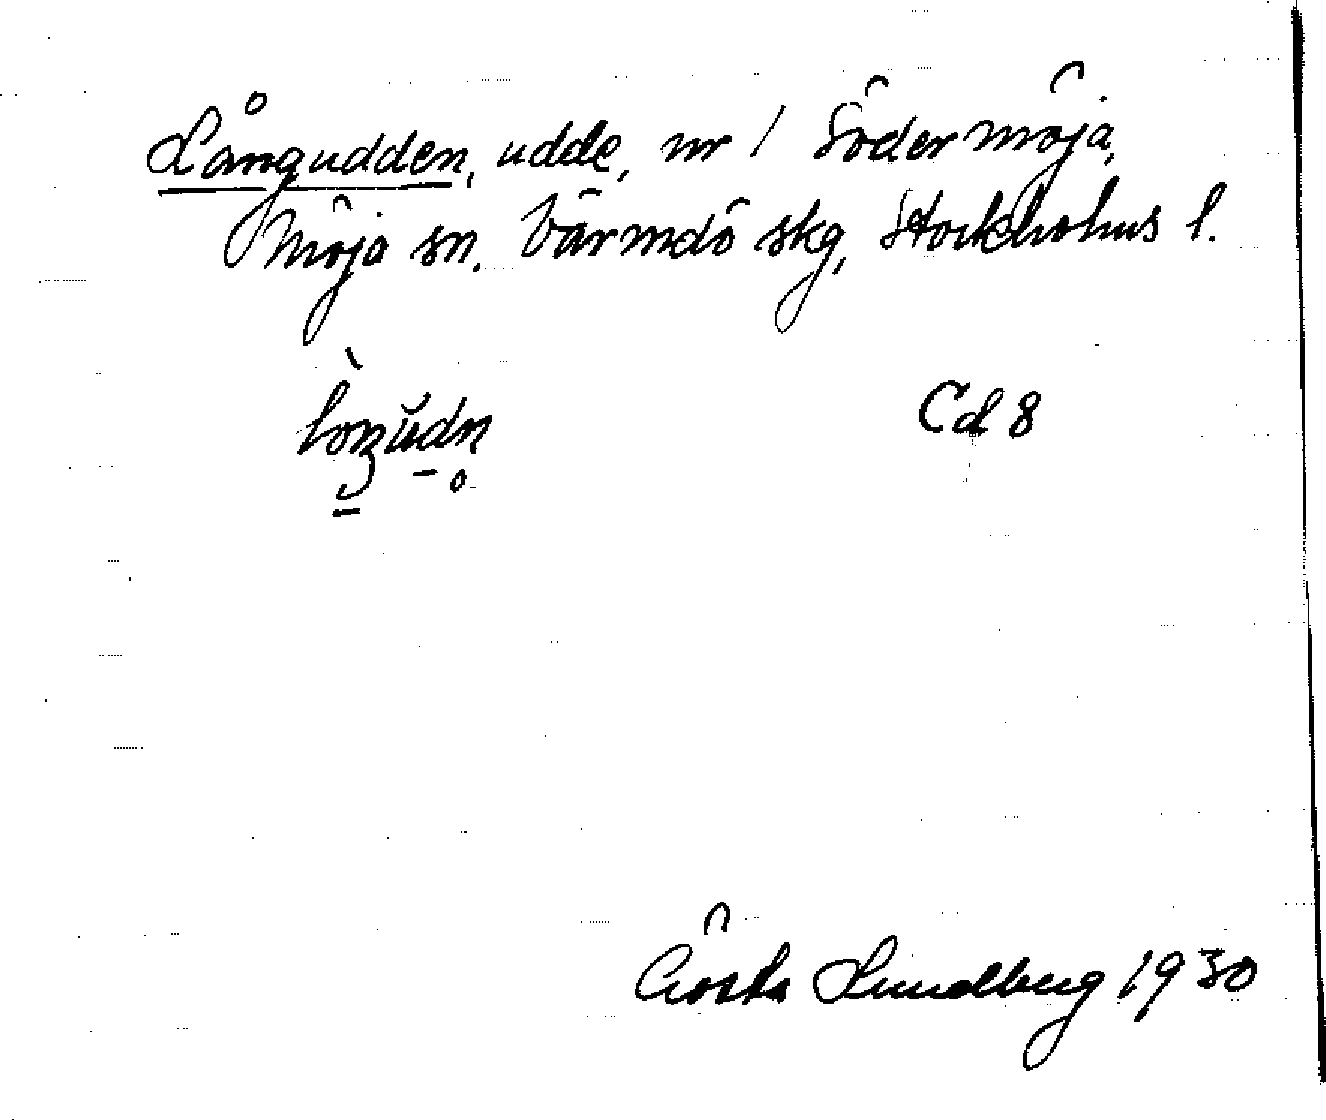 Långudden, udde, nr 1 Södermöja,
Möja sn. Värmdö skg, Stockholms l.
Cd 8
Gösta Lundberg 1930